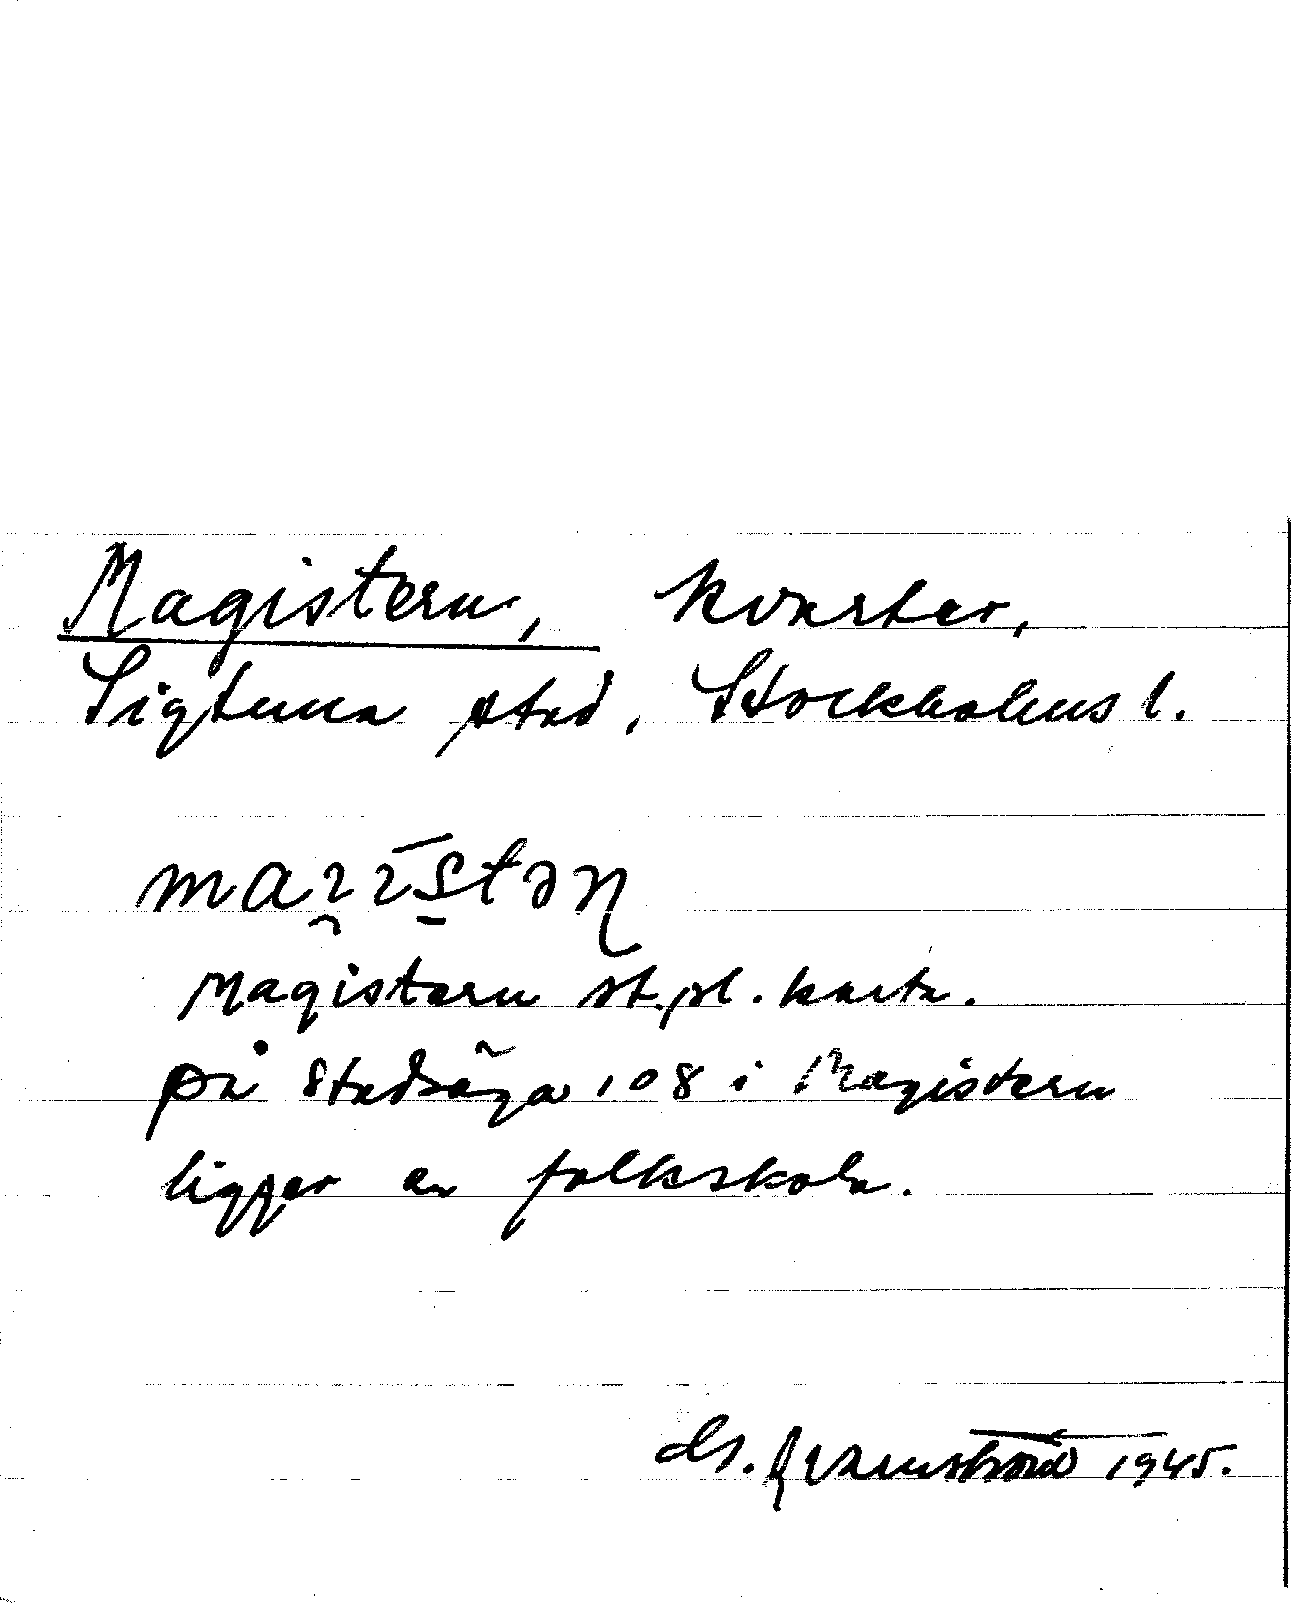 Magistern, kvarter,
Sigtuna stad, Stockholms l.
Magistern st.pl. karta.
På Stadsäga 108 i Magistern
ligger en folkskola.
1945.